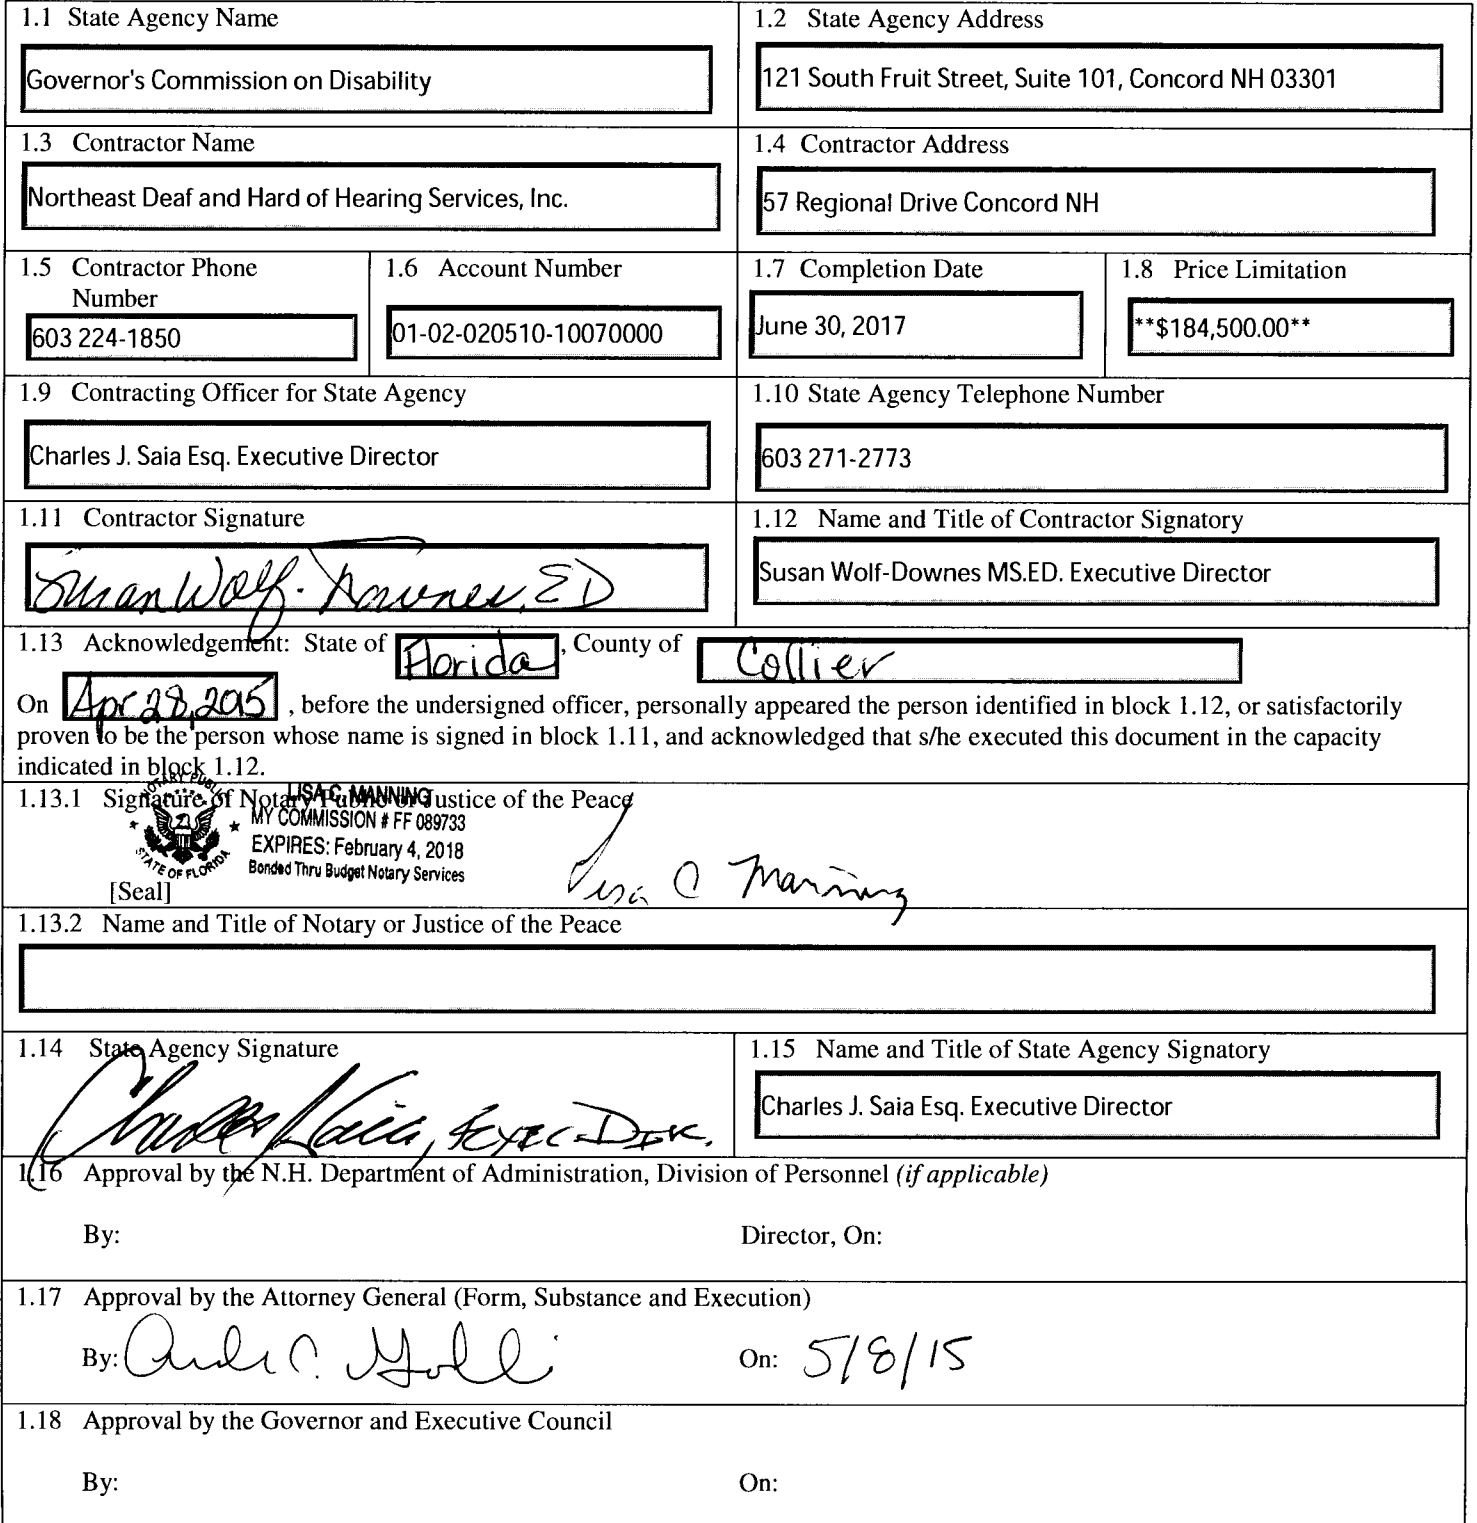 1.1 State Agency Name
Governor's Commission on Disability
1.2 State Agency Address
121 South Fruit Street, Suite 101, Concord NH 03301
1.3 Contractor Name
Northeast Deaf and Hard of Hearing Services, Inc.
1.4 Contractor Address
57 Regional Drive Concord NH
1.5 Contractor Phone
Number
603 224-1850
1.6 Account Number
01-02-020510-10070000
1.7 Completion Date
June 30, 2017
1.8 Price Limitation
**$184,500.00**
1.9 Contracting Officer for State Agency
Charles J. Saia Esq. Executive Director
1.10 State Agency Telephone Number
603 271-2773
1.11 Contractor Signature
Susan Wolf-Downes, ED
1.12 Name and Title of Contractor Signatory
Susan Wolf-Downes MS.ED. Executive Director
1.13 Acknowledgement: State of Florida, County of Collier
On Apr 28, 2015, before the undersigned officer, personally appeared the person identified in block 1.12, or satisfactorily
proven to be the person whose name is signed in block 1.11, and acknowledged that s/he executed this document in the capacity
indicated in block 1.12.
1.13.1 Signature of Notary Public or Justice of the Peace
NOTARY PUBLIC
STATE OF FLORIDA
LISA C. MANNING
MY COMMISSION # FF 089733
EXPIRES: February 4, 2018
Bonded Thru Budget Notary Services
Lisa C Manning
[Seal]
1.13.2 Name and Title of Notary or Justice of the Peace
1.14 State Agency Signature
Charles Saia, Exec. Dir.
1.15 Name and Title of State Agency Signatory
Charles J. Saia Esq. Executive Director
1.16 Approval by the N.H. Department of Administration, Division of Personnel (if applicable)
By: Director, On:
1.17 Approval by the Attorney General (Form, Substance and Execution)
By: On: 5/8/15
1.18 Approval by the Governor and Executive Council
By: On: